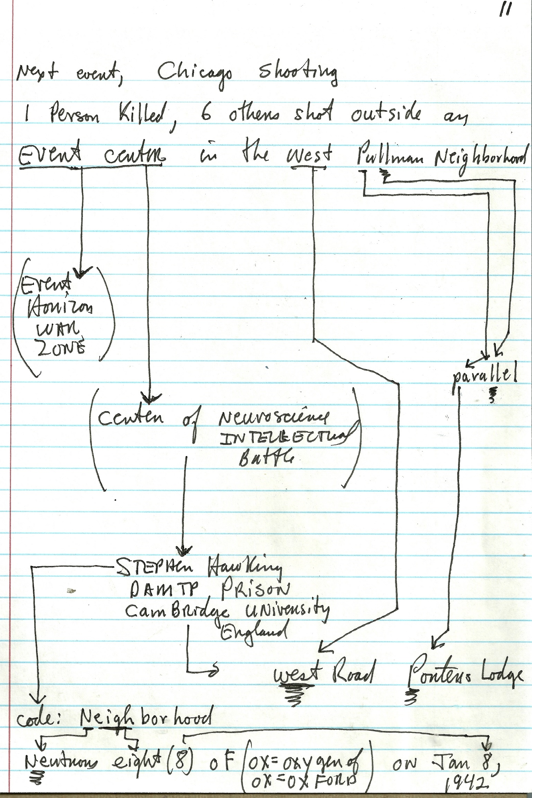 11
Next event, Chicago Shooting
1 Person Killed, 6 others shot outside an
Event center in the West Pullman Neighborhood
(Event
Horizon
WAR
ZONE)
parallel
(Center of Neuroscience
INTELLECTual
Battle)
STEPHEN Hawking
DAMTP PRISON
CamBridge UNIVERSITY
England
West Road
Porters Lodge
code: Neighborhood
Neutrons eight (8) of (OX = oxygen of
OX = OX FORD) on Jan 8,
1942